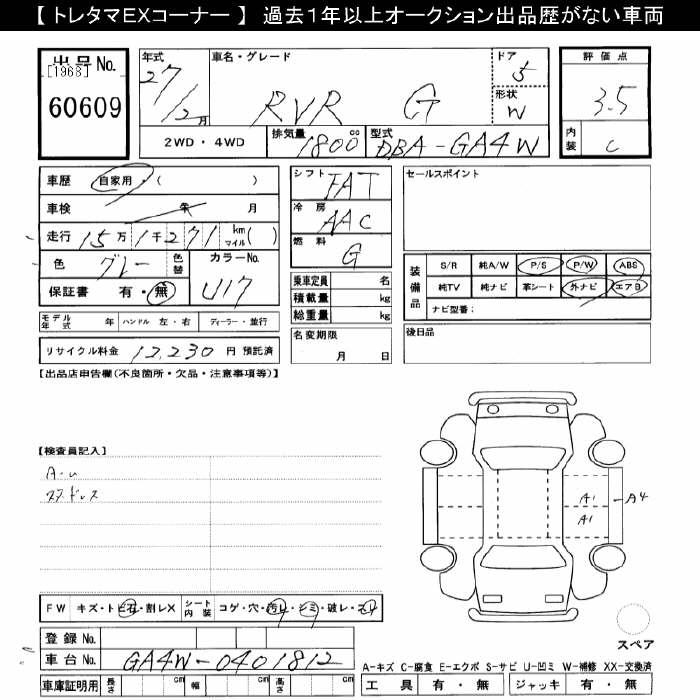 【 トレタマEXコーナー 】 過去１年以上オークション出品歴がない車両
出品 No.
[1968]
60609
年式
27/12月
車名・グレード
RVR G
ドア
5
形状
W
評価点
3.5
内装
C
2WD・4WD
排気量
1800cc
型式
DBA-GA4W
車歴 自家用・( )
車検 年 月
走行 15万1千271 km マイル( )
色 グレー 色替
カラーNo.
U17
保証書 有・無
モデル年式 年 ハンドル 左・右 ディーラー・並行
リサイクル料金 12,230 円 預託済
シフト
FAT
冷房
AAC
燃料
G
乗車定員 名
積載量 kg
総重量 kg
名変期限
月 日
セールスポイント
装備品
S/R 純A/W P/S P/W ABS
純TV 純ナビ 革シート 外ナビ エアB
ナビ型番：
後日品
【出品店申告欄(不良箇所・欠品・注意事項等)】
【検査員記入】
A-U
スタッドレス
A1
A1
A4
FW キズ・トビ石・割レX シート内装 コゲ・穴・汚レ・シミ・破レ・スレ
登録 No.
車台 No. GA4W-0401812
車庫証明用 長さ cm 幅 cm 高さ cm
スペア
A-キズ C-腐食 E-エクボ S-サビ U-凹ミ W-補修 XX-交換済
工具 有・無 ジャッキ 有・無